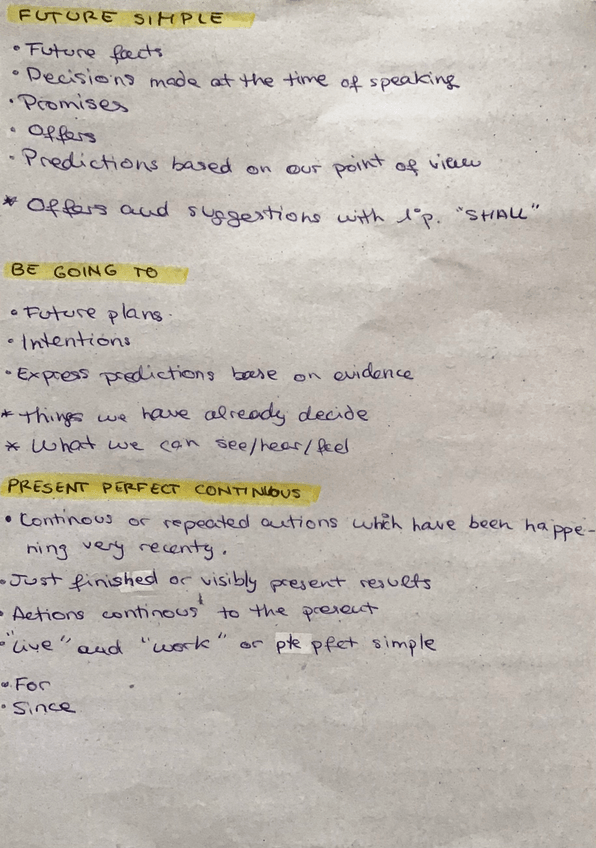 FUTURE SIMPLE
• Future facts
• Decisions made at the time of speaking
• Promises
• Offers
• Predictions based on our point of view
* Offers and suggestions with 1ªp. "SHALL"
BE GOING TO
• Future plans.
• Intentions
• Express predictions base on evidence
* things we have already decide
* What we can see/hear/feel
PRESENT PERFECT CONTINUOUS
• Continous or repeated actions which have been happe-
ning very recenty.
• Just finished or visibly present results
• Actions continous to the present
• "live" and "work" or pte pfct simple
• For
• Since